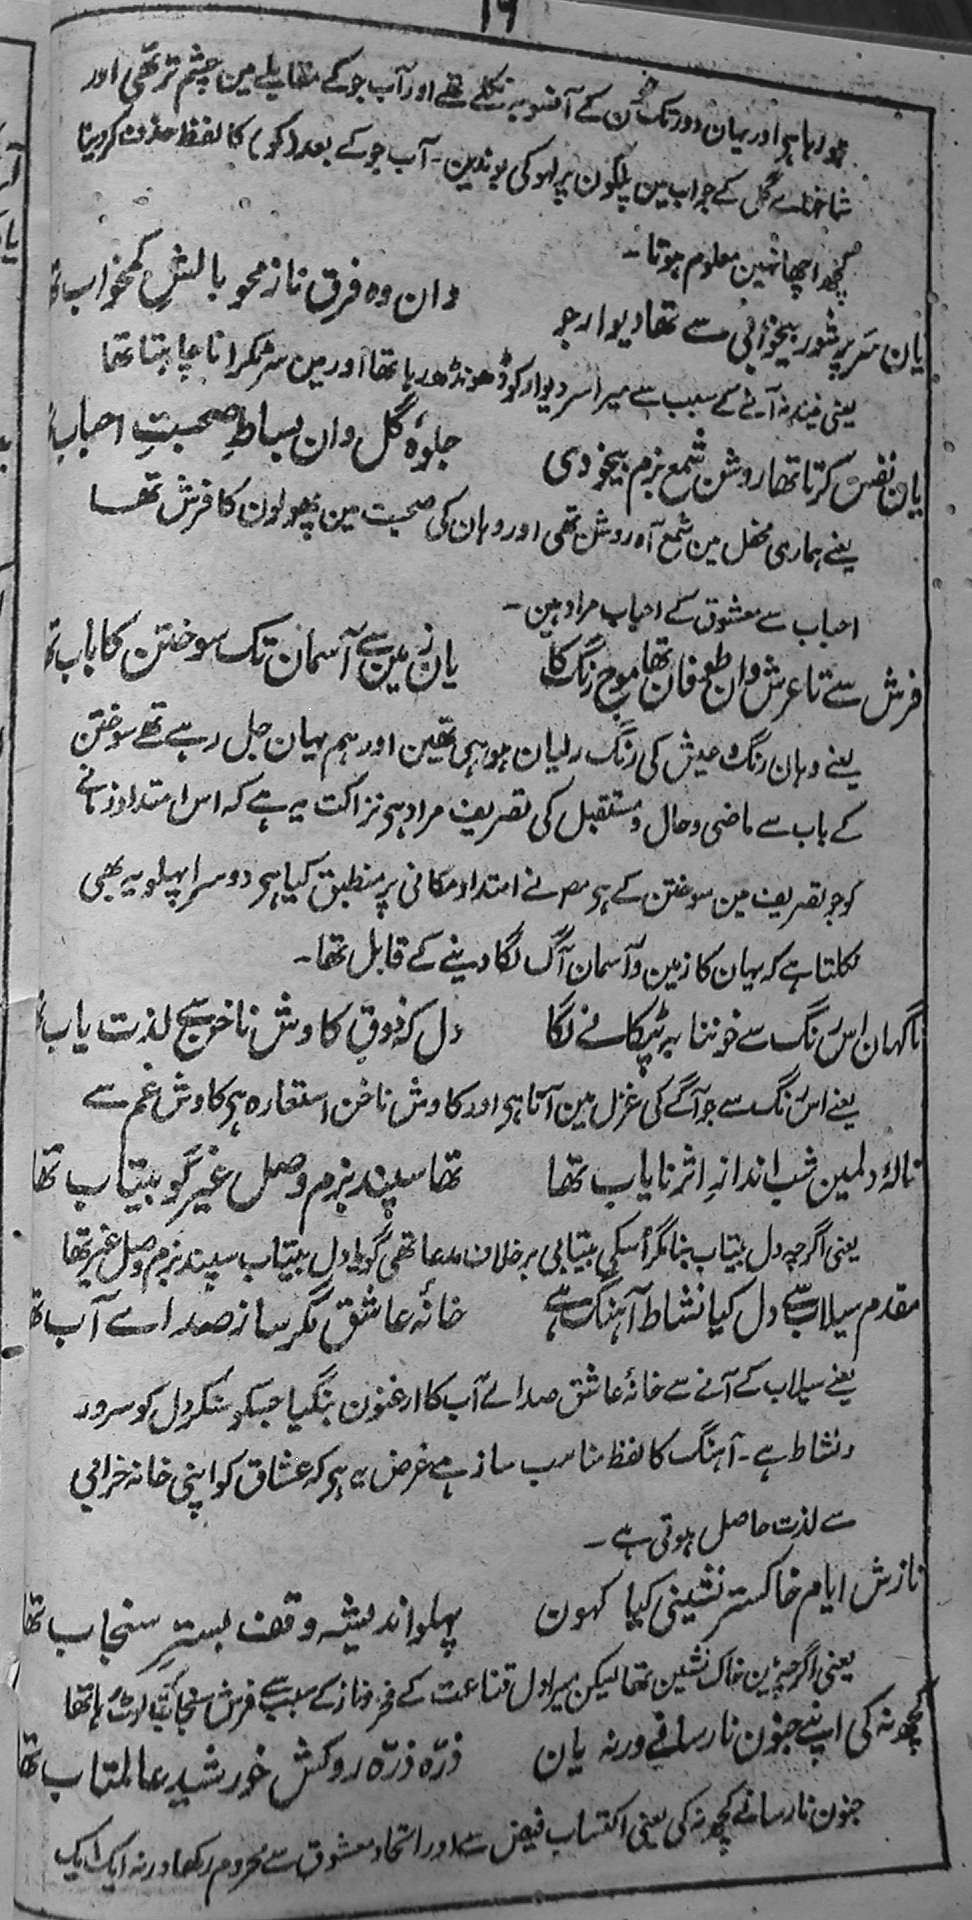 ۱۹
ہو رہا ہی اور یہان دور تک خون کے آنسو بہ نکلے تھے اور آب جو کے مقابلے مین چشم تر تھی اور
شاخہاے گل کے جواب مین پلکون پر لہو کی بوندین ۔ آب جو کے بعد (کو) کا لفظ حذف کر دینا
کچھ اچھا نہین معلوم ہوتا ۔
یان سر پر شور بیخوابی سے تھا دیوار جو وان وہ فرق ناز محو بالشِ کمخواب تھا
یعنی نیند نہ آنے کے سبب سے میرا سر دیوار کو ڈھونڈھ رہا تھا اور مین سر ٹکرانا چاہتا تھا
یان نفس کرتا تھا روشن شمع بزم بیخودی جلوۂ گل وان بساطِ صحبتِ احباب
یعنے ہماری محفل مین شمع آہ روشن تھی اور وہان کی صحبت مین پھولون کا فرش تھا
احباب سے معشوق کے احباب مراد ہین ۔
فرش سے تا عرش وان طوفان تھا موج رنگ کا یان زمین سے آسمان تک سوختن کا باب تھا
یعنے وہان رنگ و عیش کی رنگ رلیان ہو رہی تھین اور ہم یہان جل رہے تھے سوختن
کے باب سے ماضی و حال و مستقبل کی تصریف مراد ہی نزاکت یہ ہے کہ اس امتداد زمانے
کو جو تصریف مین سوختن کے ہی مصنف نے امتداد مکانی پر منطبق کیا ہی دوسرا پہلو یہ بھی
نکلتا ہے کہ یہان کا زمین و آسمان آگ لگا دینے کے قابل تھا ۔
ناگہان اس رنگ سے خونابہ ٹپکانے لگا دل کہ ذوقِ کاوش ناخن سے لذت یاب
یعنے اس رنگ سے جو آگے کی غزل مین آتا ہی اور کاوش ناخن استعارہ ہی کاوش غم سے
نالۂ دلمین شب اندازِ اثر نایاب تھا تھا سپند بزم وصل غیر گو بیتاب تھا
یعنی اگرچہ دل بیتاب بنا مگر اُسکی بیتابی برخلاف مدعا تھی گویا دل بیتاب سپند بزم وصل غیر تھا
مقدم سیلاب سے دل کیا نشاط آہنگ ہے خانۂ عاشق مگر ساز صداے آب تھا
یعنے سیلاب کے آنے سے خانۂ عاشق صداے آب کا ارغنون بنگیا جسکو سنکر دل کو سرور
و نشاط ہے ۔ آہنگ کا لفظ مناسب ساز ہے غرض یہ ہی کہ عشاق کو اپنی خانہ خرابی
سے لذت حاصل ہوتی ہے ۔
نازش ایام خاکستر نشینی کیا کہون پہلو اندیشہ وقف بسترِ سنجاب تھا
یعنی اگرچہ مین خاک نشین تھا لیکن میرا دل قناعت کے فخر و ناز کے سبب سے فرش سنجاب پر لوٹ رہا تھا
کچھ نہ کی اپنے جنون نارسا نے ورنہ یان ذرّہ ذرّہ روکش خورشید عالمتاب تھا
جنون نارسا نے کچھ نہ کی یعنی اکتساب فیض سے اور اتحاد معشوق سے محروم رکھا ورنہ ایک ایک